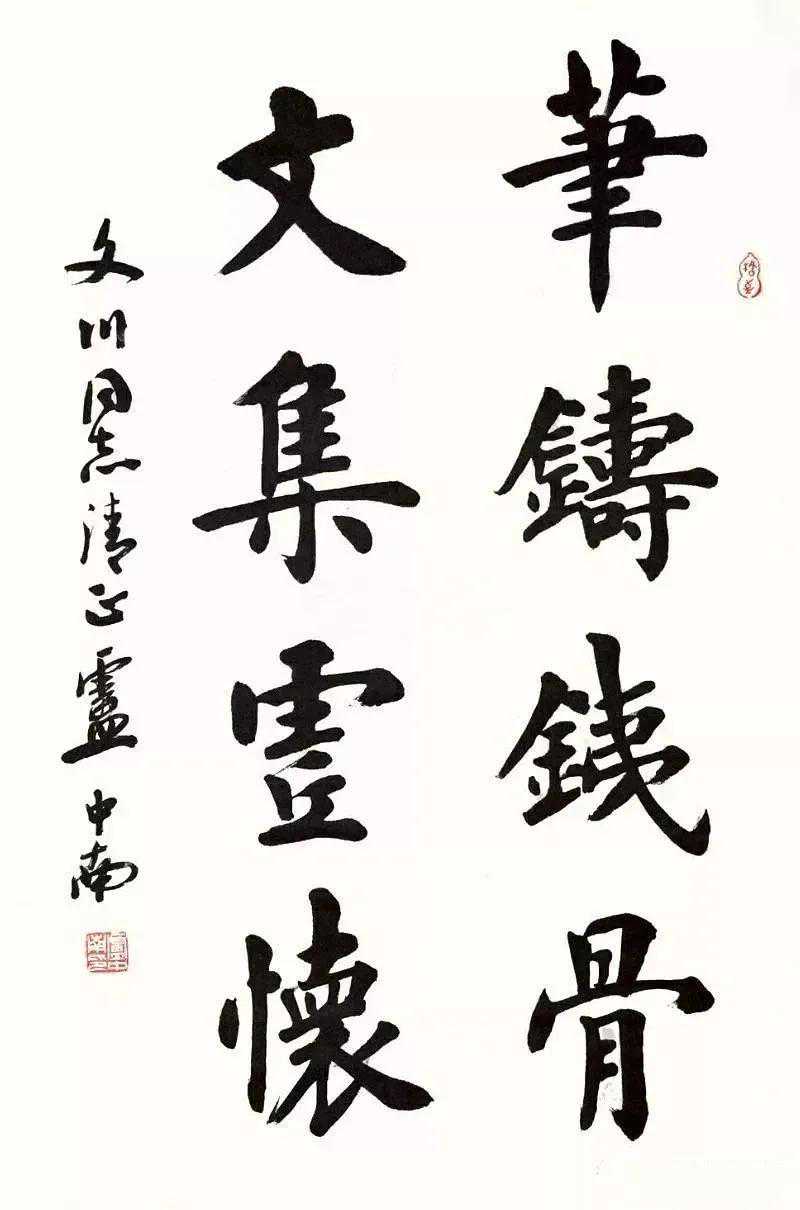 筆鑄銕骨
文集霊懷
文川同志清正 盧中南